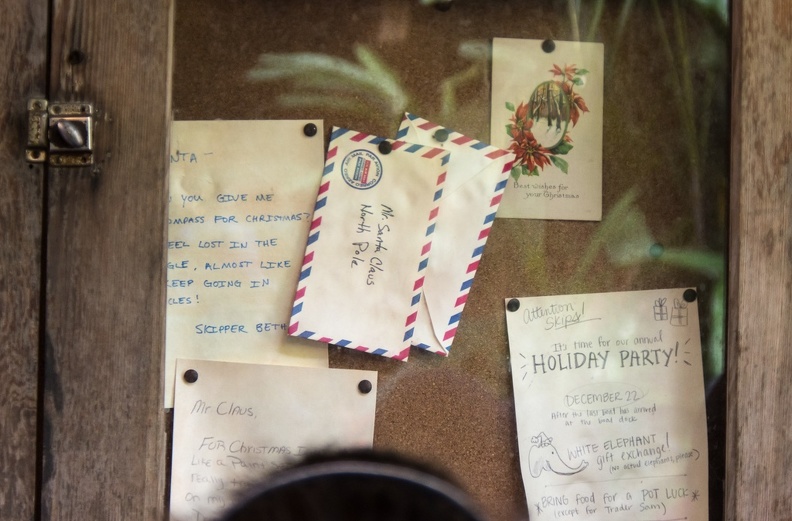 NTA-
YOU GIVE ME
OMPASS FOR CHRISTMAS?
EEL LOST IN THE
GLE, ALMOST LIKE
KEEP GOING IN
CLES!
SKIPPER BETH
Mr. Santa Claus
North Pole
Best wishes for
your Christmas
Mr Claus,
FOR CHRISTMAS I
Like a
really
on my
Attention
Skips!
It's time for our annual
HOLIDAY PARTY!
DECEMBER 22
After the last boat has arrived
at the boat dock
WHITE ELEPHANT
gift exchange!
(no actual elephants, please)
*BRING food for a POT LUCK*
(except for Trader Sam)